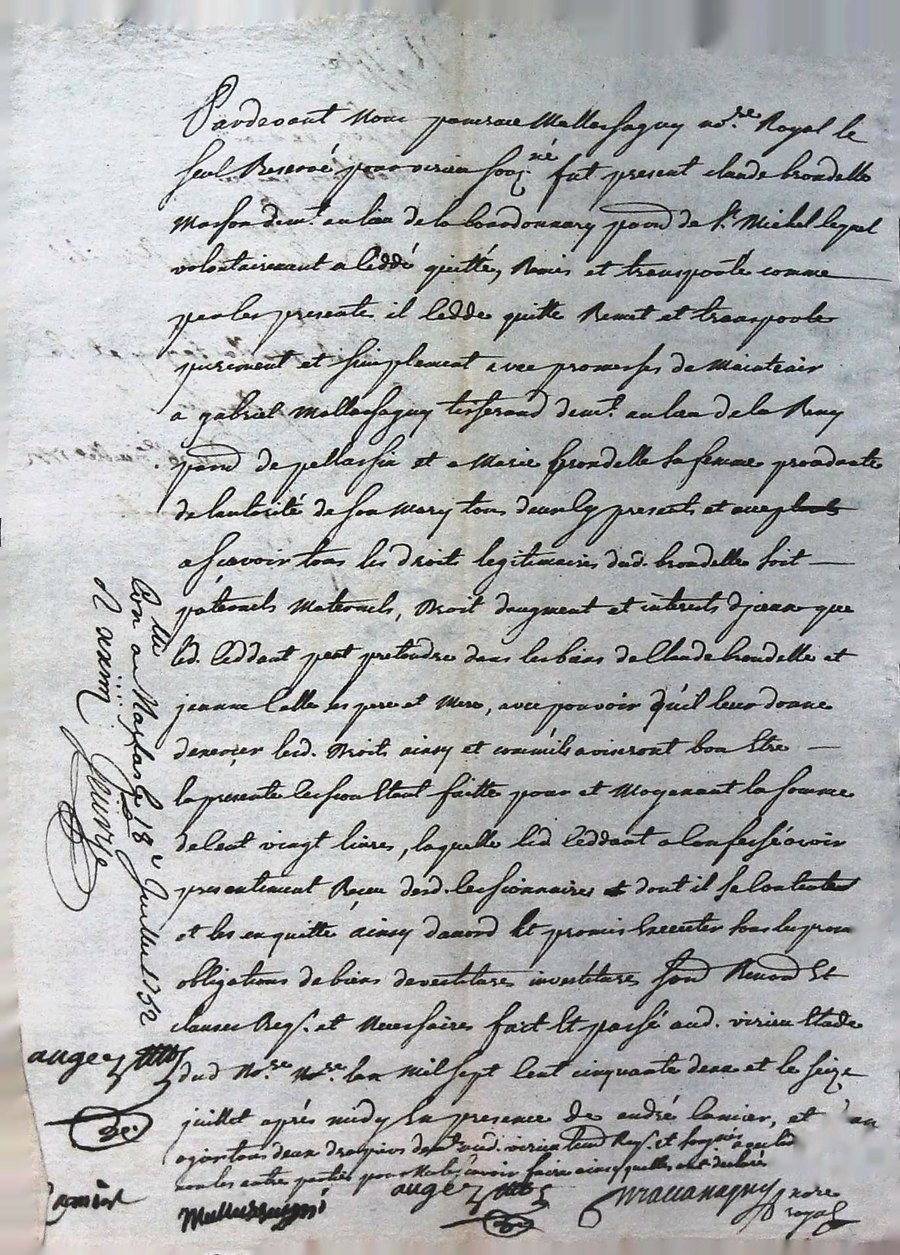 Pardevant Nous Mallassagny no.re Royal le
seul Reservé pour virieu souz.né fut present claude brondelle
Masson dem.t au lieu de la bourdonnary parr de S.t Michel lequel
volontairement a ceddé quitté, Remis et transporté comme
par les presente il cedde quitte Remet et transporte
purement et simplement avec promesses de Maintenir
a gabriel Mallassagny tisserand dem.t au lieu de la Remy
parr de pellassin et a Marie brondelle sa femme procedante
de lautorité de son Mary tous deux icy presents et acceptants
a scavoir tous les droit legitimaires dud. brondelle soit
paternels Maternels, Droit daugment et interets d'jceux que
led. ceddant peut pretendre dans les biens de Claude brondelle et
jeanne Calle ses pere et Mere, avec pouvoir qu'il leur donne
dexercer lesd. Droits ainsy et comme ils aviseront bon Etre
la presente cession Etant faitte pour et Moyenant la somme
de Cent vingt livres, laquelle led ceddant a Confessé avoir
presentement Receu desd. cessionnaires dont il se Contente
et les en quitte ainsy daccord Et promis Executer sous les
obligations de biens devestiture investiture fond Renond Et
clauses Req.s et Necessaires fait Et passé aud. virieu Etude
dud No.re No.re lan Mil sept Cent cinquante deux et le seize
juillet aprés midy En presence de andré Camier, et
tous deux dem.t aud. virieu tem Req.s et soignés
non les autre parties pour ne scavoir faire ainsy quelles ont declaré
auger
Mallassagny
Mallassagny nore
royal
Con.lé a Maglas le 18.e Juillet 1752
R
auger
Camier